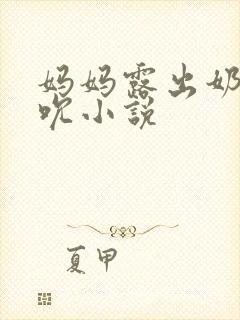 妈妈露出奶
吹小説
夏甲